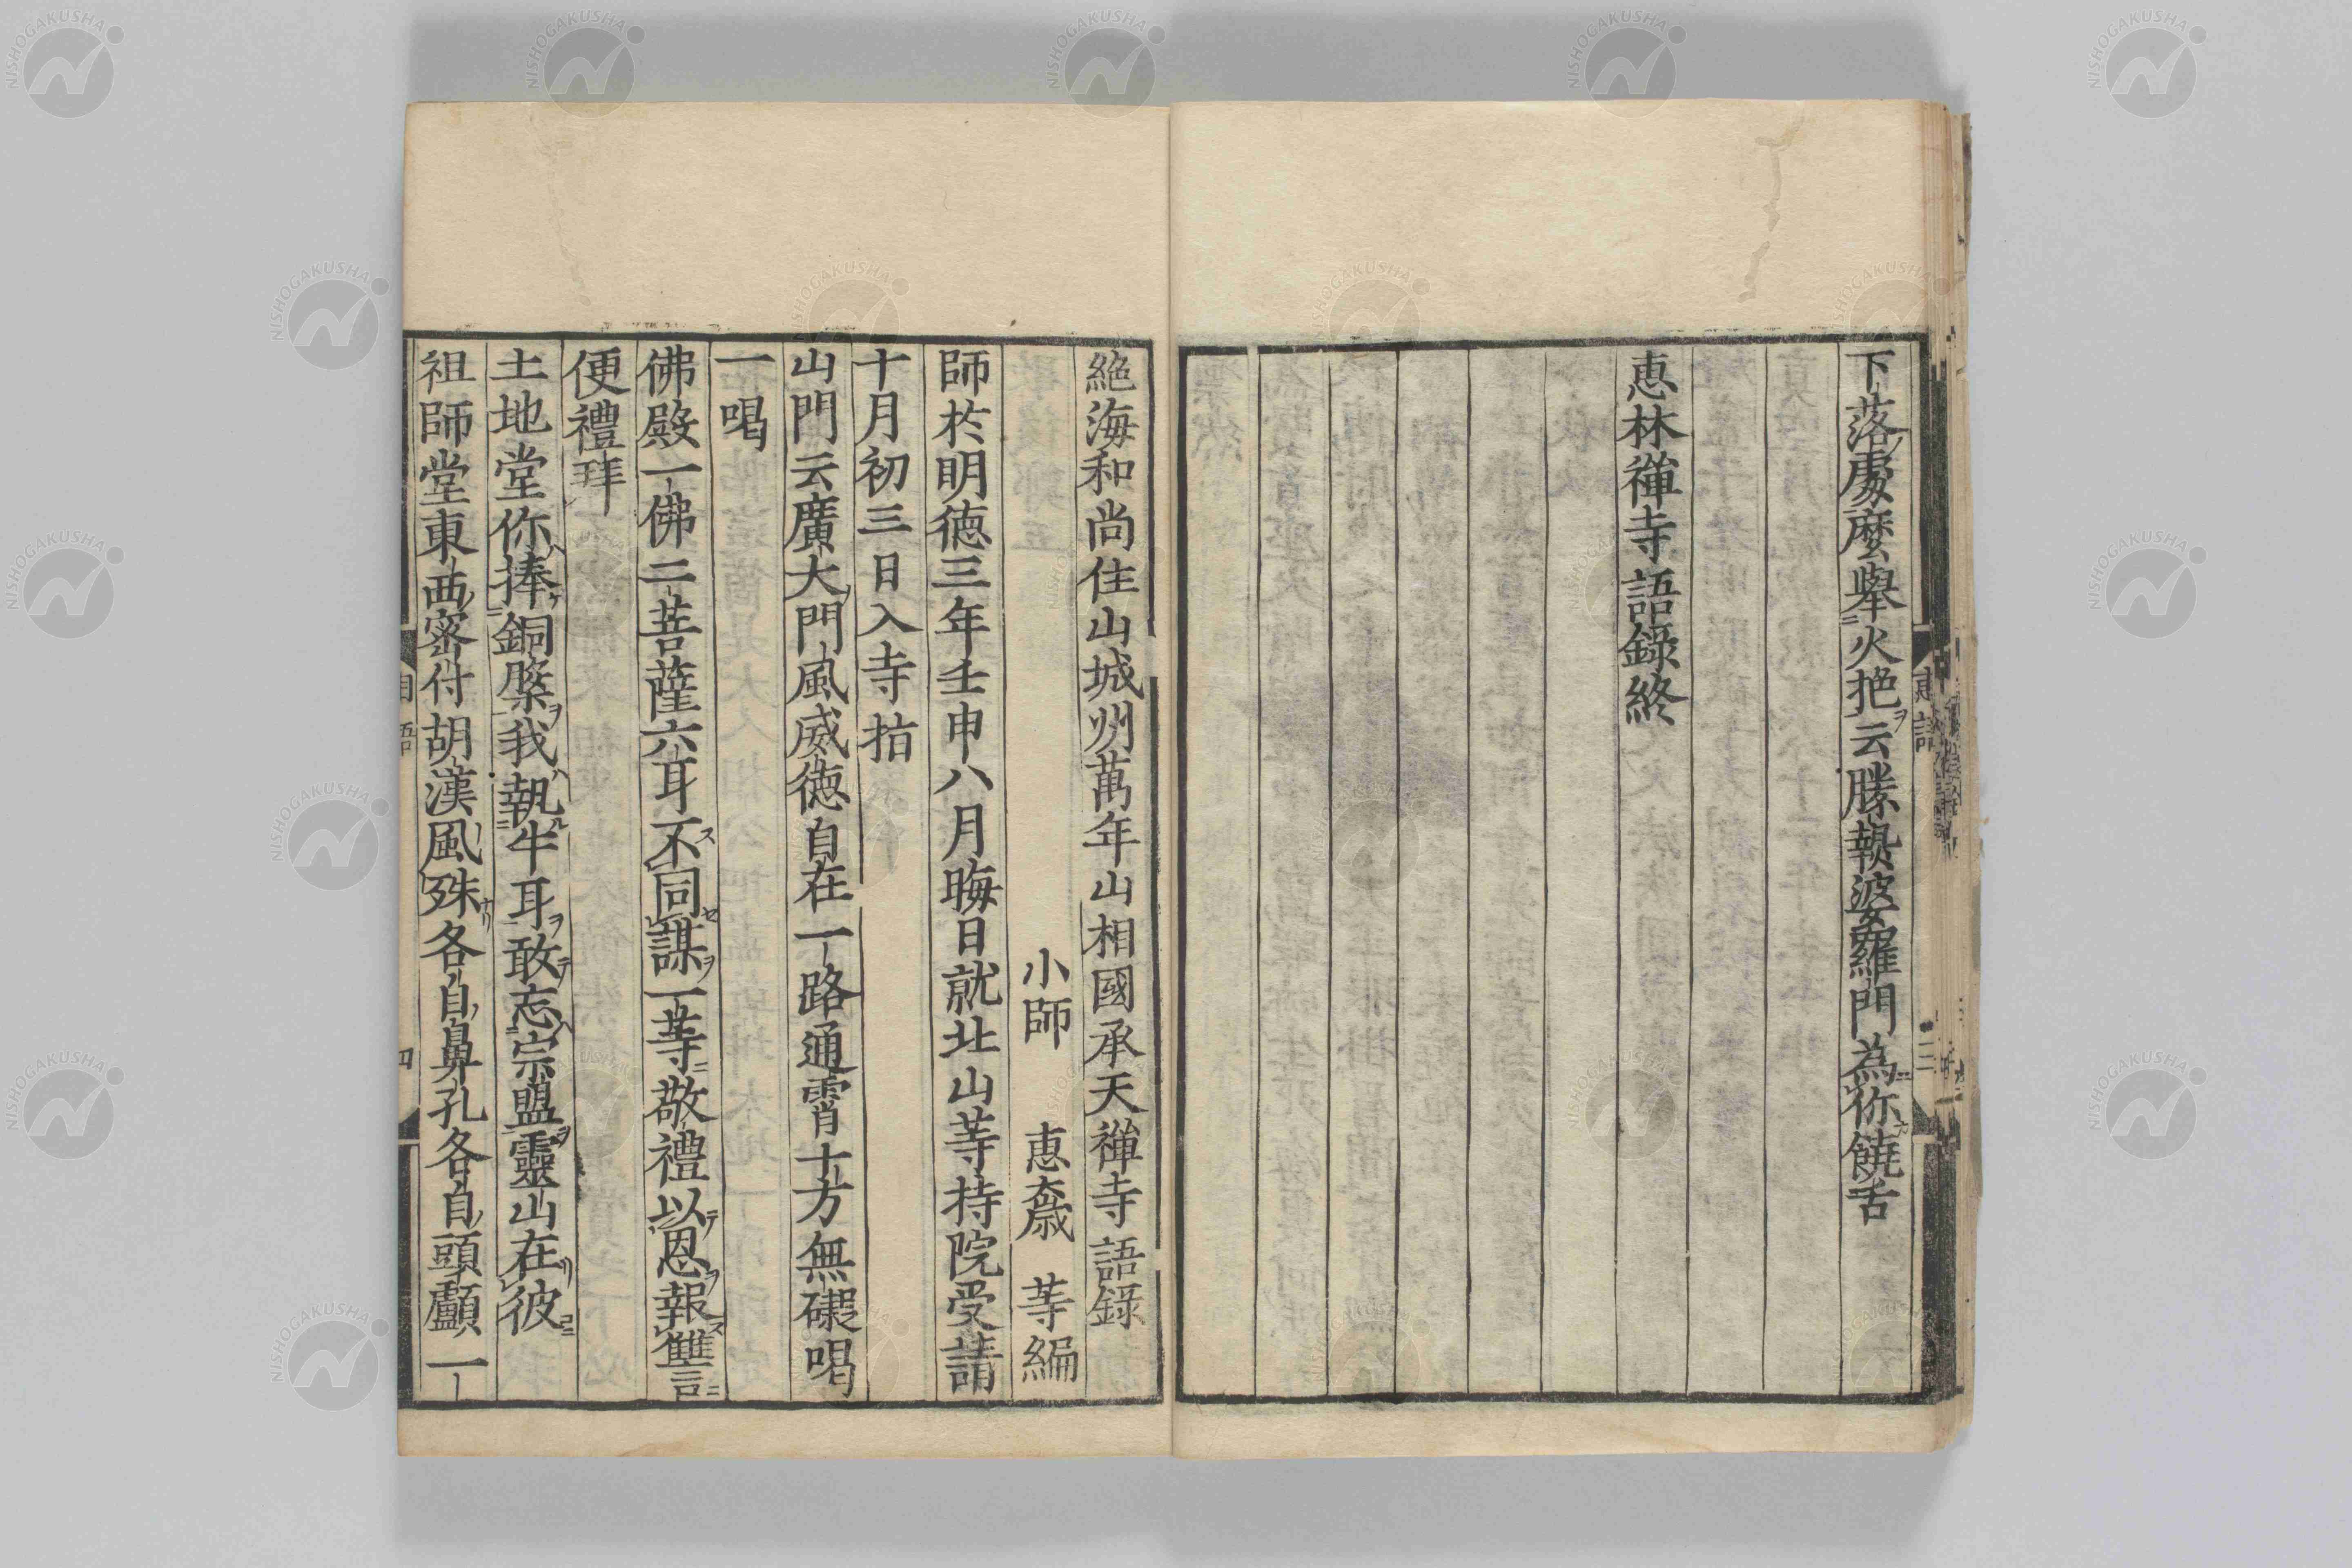 下落處麼舉火把云勝熱婆羅門為你饒舌
惠林禪寺語錄終
絕海和尚住山城州萬年山相國承天禪寺語錄
小師 惠奫 等編
師於明德三年壬申八月晦日就北山等持院受請
十月初三日入寺指
山門云廣大門風威德自在一路通霄十方無礙喝
一喝
佛殿一佛二菩薩六耳不同謀一等敬禮以恩報讎言
便禮拜
土地堂你捧銅槃我執牛耳敢忘宗盟靈山在彼
祖師堂東西密付胡漢風殊各自鼻孔各自頭顱一